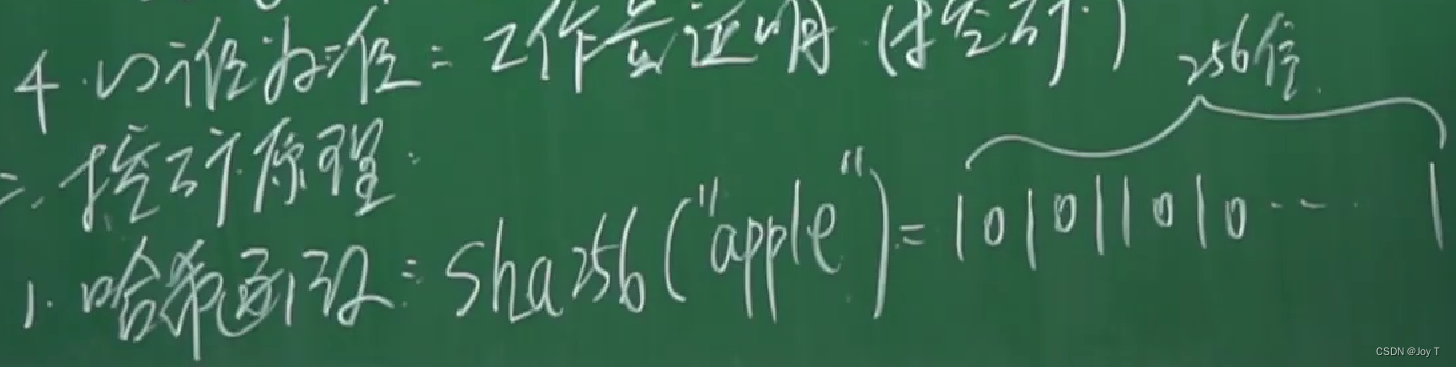 4. 以谁为准：工作量证明（挖矿）
256位
二. 挖矿原理：
1. 哈希函数：Sha256("apple")=101011010... 1
CSDN @Joy T